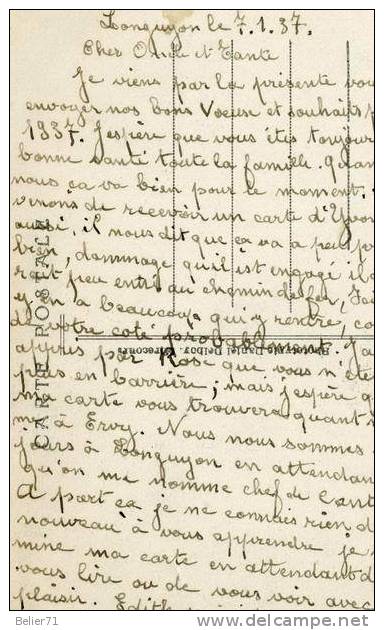 Longuyon le 7.1.37.
Cher Oncle et Tante
Je viens par la présente vou
envoyer nos bons Vœux et souhaits p
1937. J'espère que vous êtes toujour
bonne santé toute la famille. Quan
nous ça va bien pour le moment.
venons de recevoir un carte d'Yvon
aussi, il nous dit que ça va a peu po
bien, dommage qu'il est engagé il a
rait peu entré au chemin de fer, J'ai
y en a beaucoup qui y rentre, co
de votre coté probablement. J'a
appris par Rose que vous n'éte
plus en barrière; mais j'espère q
ma carte vous trouvera quant
me à Ervy. Nous nous sommes
jours à Longuyon en attendan
qu'on me nomme chef de cant
A part ça je ne connais rien d
nouveau à vous apprendre je
mine ma carte en attendant d
vous lire ou de vous voir avec
plaisir. Edith
CARTE POSTALE
Daniel Delboy Mirecourt
Belier71
WWW.DELCAMPE.NET